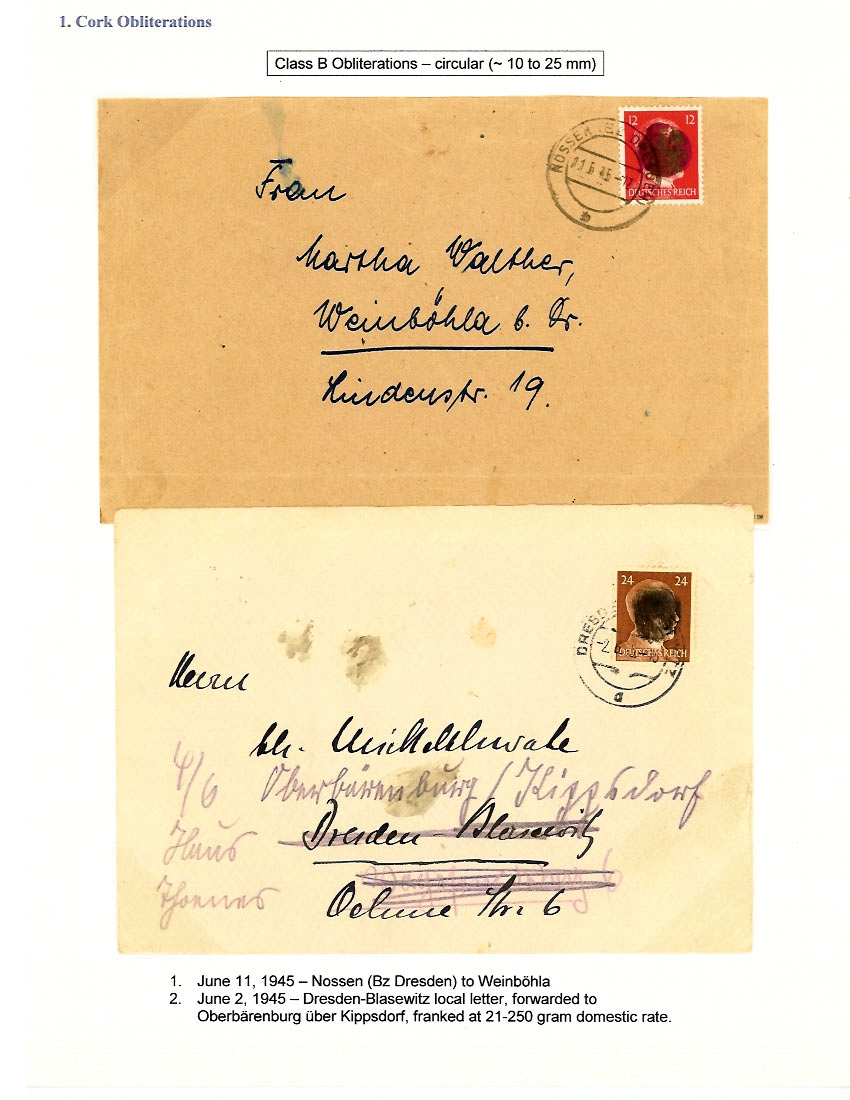 1. Cork Obliterations
Class B Obliterations – circular (~ 10 to 25 mm)
12 12
NOSSEN (BZ DRESDEN)
11.6.45
DEUTSCHES REICH
b
Frau
Martha Walther,
Weinböhla b. Dr.
Lindenstr. 19.
24 24
DRESDEN
DEUTSCHES REICH
a
Herrn
4/6 Oberbärenburg / Kippsdorf
Dresden-Blasewitz
Haus
Thoenes
Str. 6
1. June 11, 1945 – Nossen (Bz Dresden) to Weinböhla
2. June 2, 1945 – Dresden-Blasewitz local letter, forwarded to
Oberbärenburg über Kippsdorf, franked at 21-250 gram domestic rate.